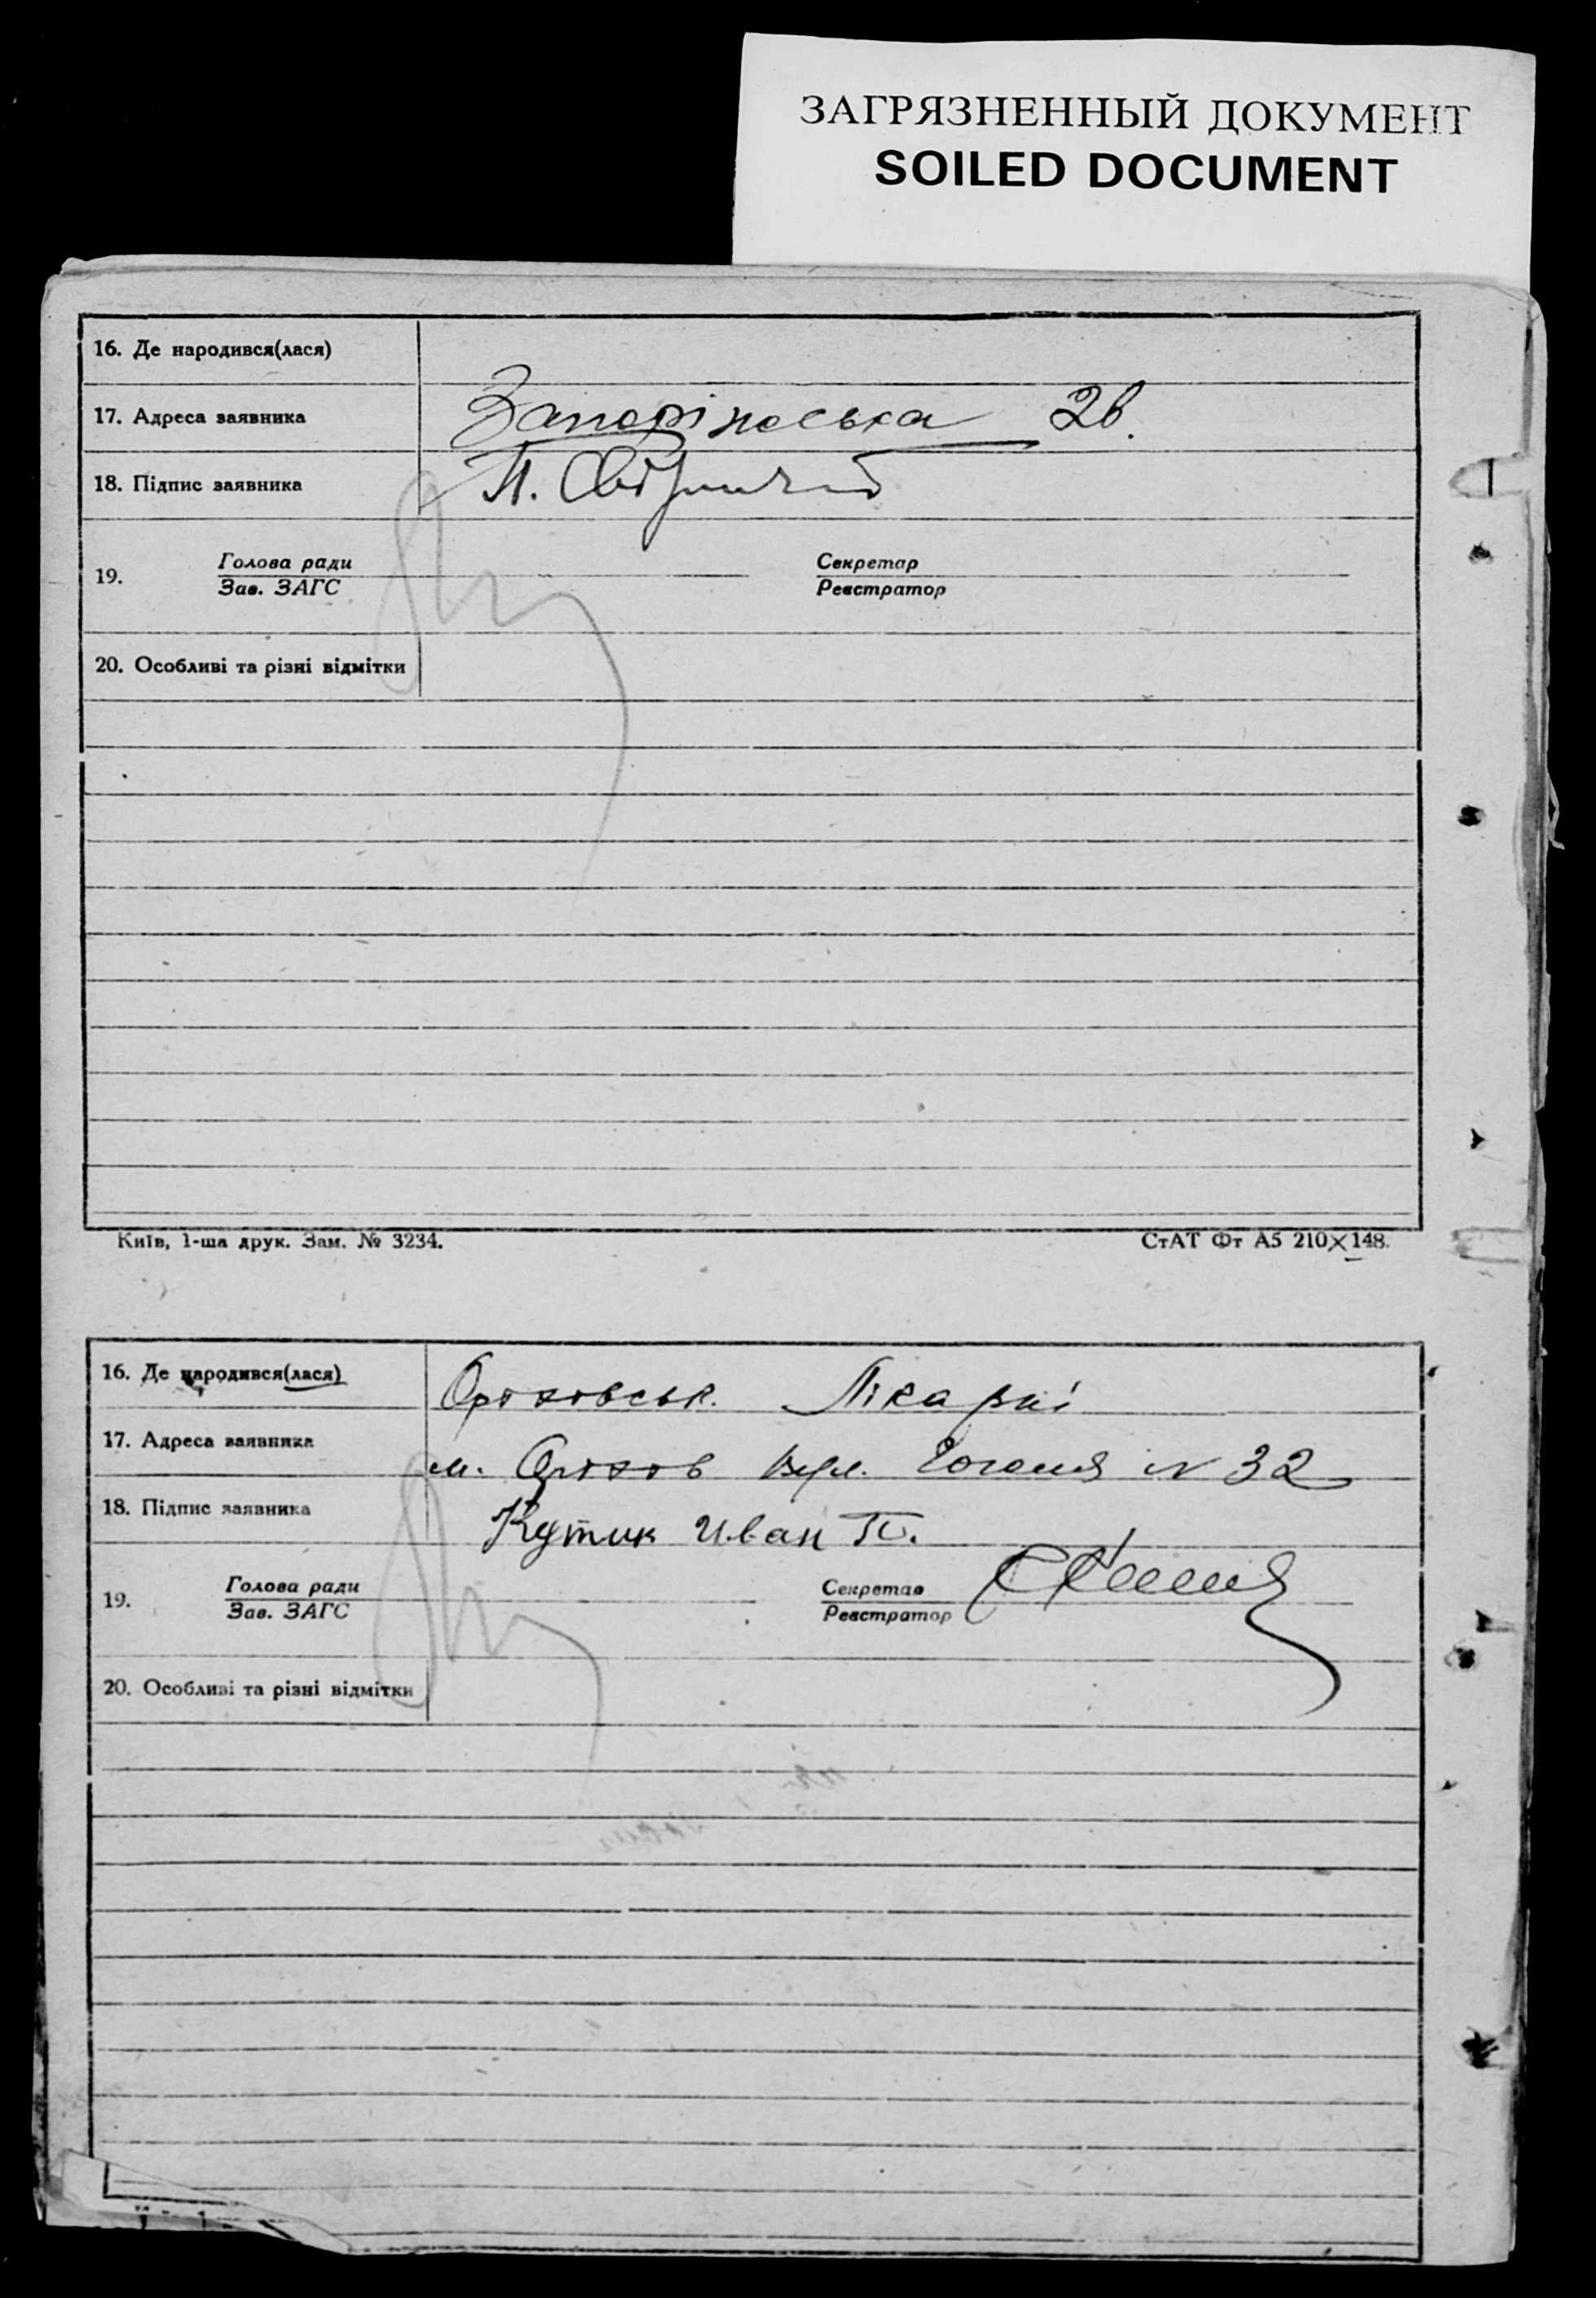 ЗАГРЯЗНЕННЫЙ ДОКУМЕНТ
SOILED DOCUMENT
16. Де народився(лася)
17. Адреса заявника Запоріжська 2в.
18. Підпис заявника П.
19. Голова ради Секретар
Зав. ЗАГС Реєстратор
20. Особливі та різні відмітки
Київ, 1-ша друк. Зам. № 3234. СтАТ Фт А5 210×148.
16. Де народився(лася) Ороховськ. Лікарні
17. Адреса заявника м. Орохов вул. Гоголя N 32
18. Підпис заявника Кутик Иван П.
19. Голова ради Секретар
Зав. ЗАГС Реєстратор
20. Особливі та різні відмітки